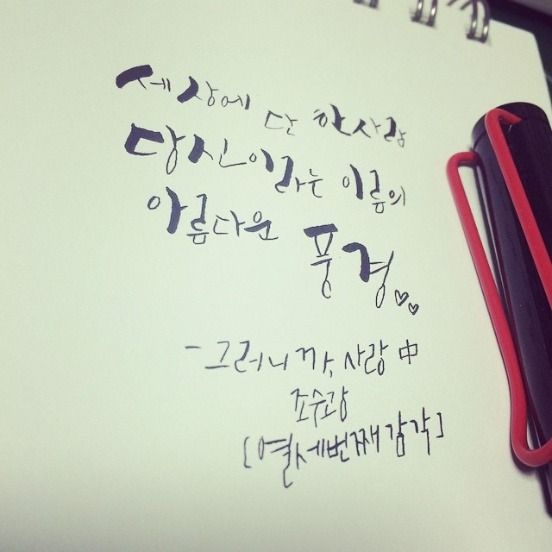 세상에 단 한사람
당신이라는 이름의
아름다운
풍경
- 그러니까, 사랑 中
조수광
[열세번째 감각]